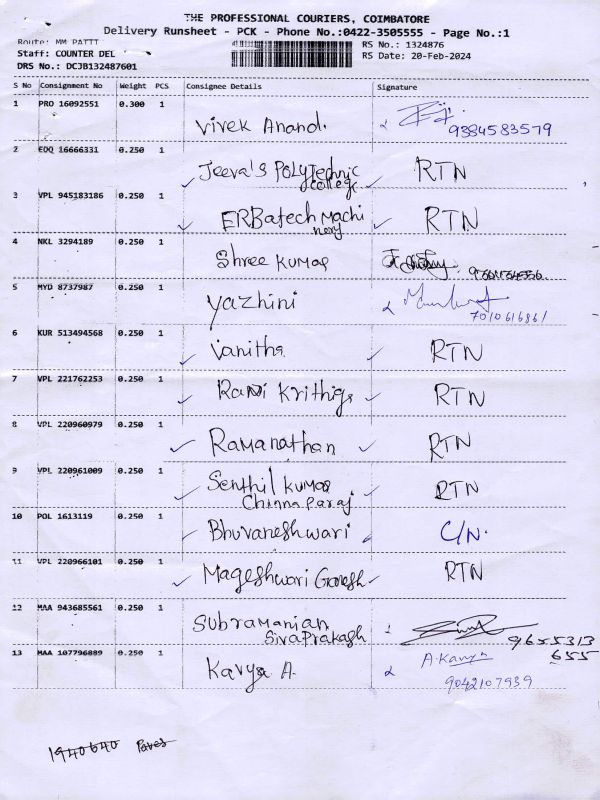 THE PROFESSIONAL COURIERS, COIMBATORE
Delivery Runsheet - PCK - Phone No.:0422-3505555 - Page No.:1
Route: MM PATTI
RS No.: 1324876
Staff: COUNTER DEL
RS Date: 20-Feb-2024
DRS No.: DCJB132487601
S No Consignment No Weight PCS Consignee Details Signature
1 PRO 16092551 0.300 1
Vivek Anand. 9384583579
2 EDQ 16666331 0.250 1
Jeeva's Polytechnic RTN
college
3 VPL 945183186 0.250 1
ERBatech Machi RTN
nery
4 NKL 3294189 0.250 1
Shree Kumar
5 MYD 8737987 0.250 1
Yazhini
7010616861
6 KUR 513494568 0.250 1
Vanitha RTN
7 VPL 221762253 0.250 1
Rani Krithiga RTN
8 VPL 220960979 0.250 1
Ramanathan RTN
9 VPL 220961009 0.250 1
Senthil Kumar RTN
Chinnaparaj
10 POL 1613119 0.250 1
Bhuvaneshwari C/N.
11 VPL 220966101 0.250 1
Mageshwari Ganesh RTN
12 MAA 943685561 0.250 1
Subramanian
Sivaprakash 9655313
655
13 MAA 107796889 0.250 1
Kavya A. A.Kavya
9042107939